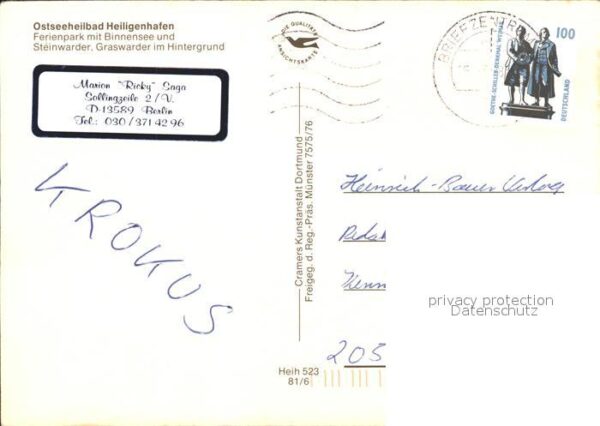 Ostseeheilbad Heiligenhafen
Ferienpark mit Binnensee und
Steinwarder, Graswarder im Hintergrund
Marion "Ricky" Saga
Sollingzeile 2/V.
D-13589 Berlin
Tel.: 030/371 42 96
KROKUS
DIE QUALITÄTS
ANSICHTSKARTE
Cramers Kunstanstalt Dortmund
Freigeg. d. Reg.-Präs. Münster 7575/76
Heih 523
81/6
BRIEFZENTR
100
GOETHE-SCHILLER-DENKMAL WEIMAR
DEUTSCHLAND
Heinrich-Bauer Verlag
Redak
205
privacy protection
Datenschutz